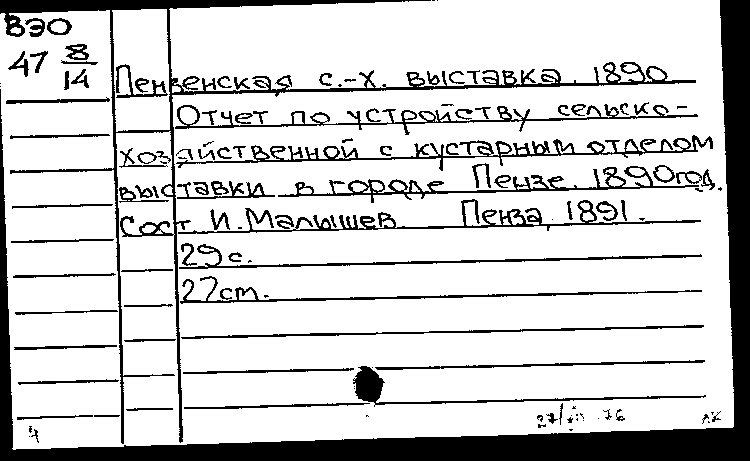 ВЭО
47 8/14
Пензенская с.-х. выставка. 1890
Отчет по устройству сельско-
хозяйственной с кустарным отделом
выставки в городе Пензе. 1890 год.
Сост. И. Малышев. Пенза, 1891.
29 с.
27 cm.
4
76 ЛК